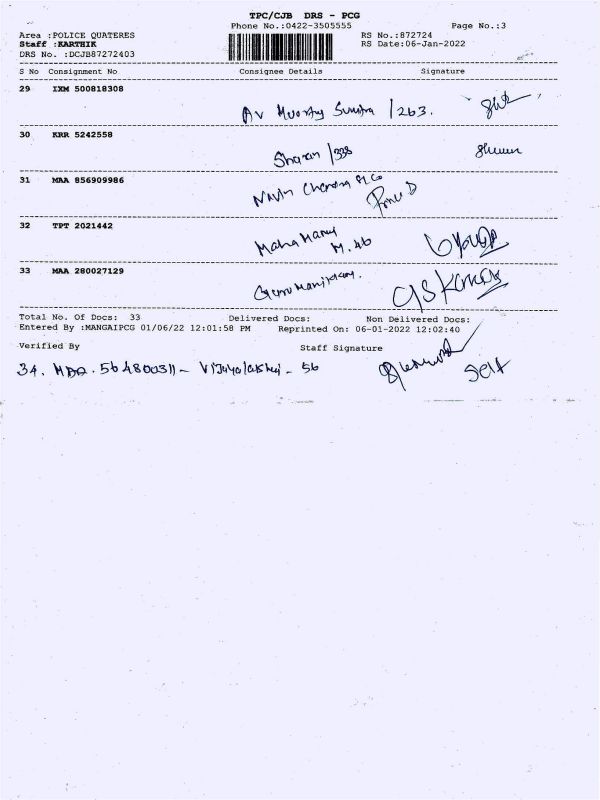 TPC/CJB DRS - PCG
Phone No.:0422-3505555 Page No.:3
Area :POLICE QUATERES RS No.:872724
Staff :KARTHIK RS Date:06-Jan-2022
DRS No. :DCJB87272403
S No Consignment No Consignee Details Signature
29 IXM 500818308
Av Moorthy Sumitra /263.
30 KRR 5242558
Sharan /338
31 MAA 856909986
Chendra
32 TPT 2021442
Maha
M.46
33 MAA 280027129
Total No. Of Docs: 33 Delivered Docs: Non Delivered Docs:
Entered By :MANGAIPCG 01/06/22 12:01:58 PM Reprinted On: 06-01-2022 12:02:40
Verified By Staff Signature
34. MAA. 564800311 - Vijayalakshmi - 56
Self